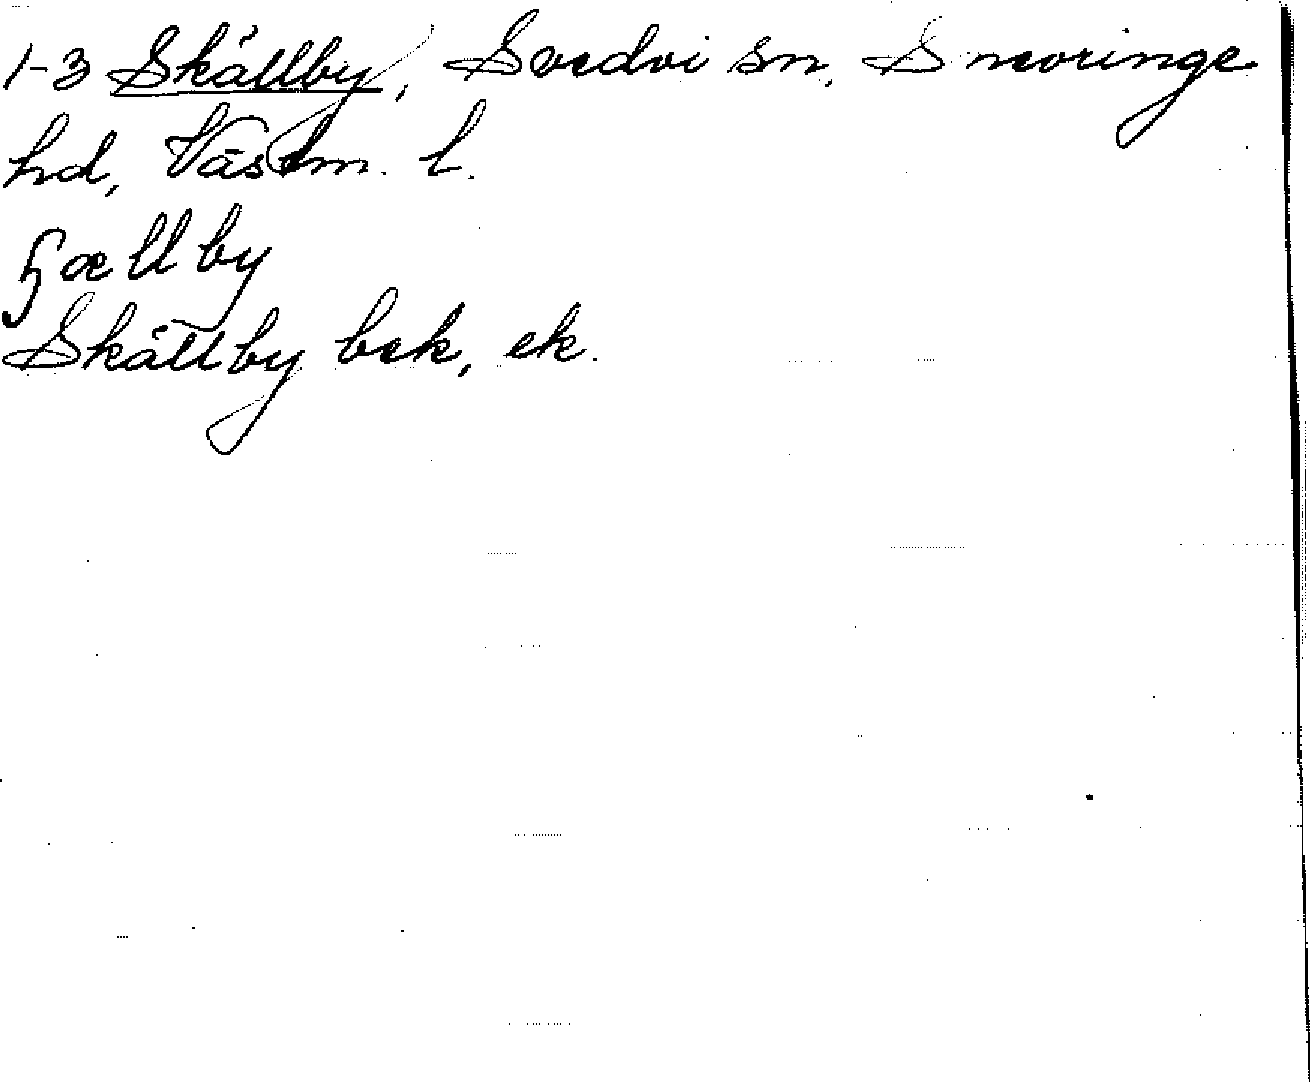 1-3 Skällby, Svedvi sn, Snevringe
hd, Västm. l.
ʃællby
Skällby bek, ek.